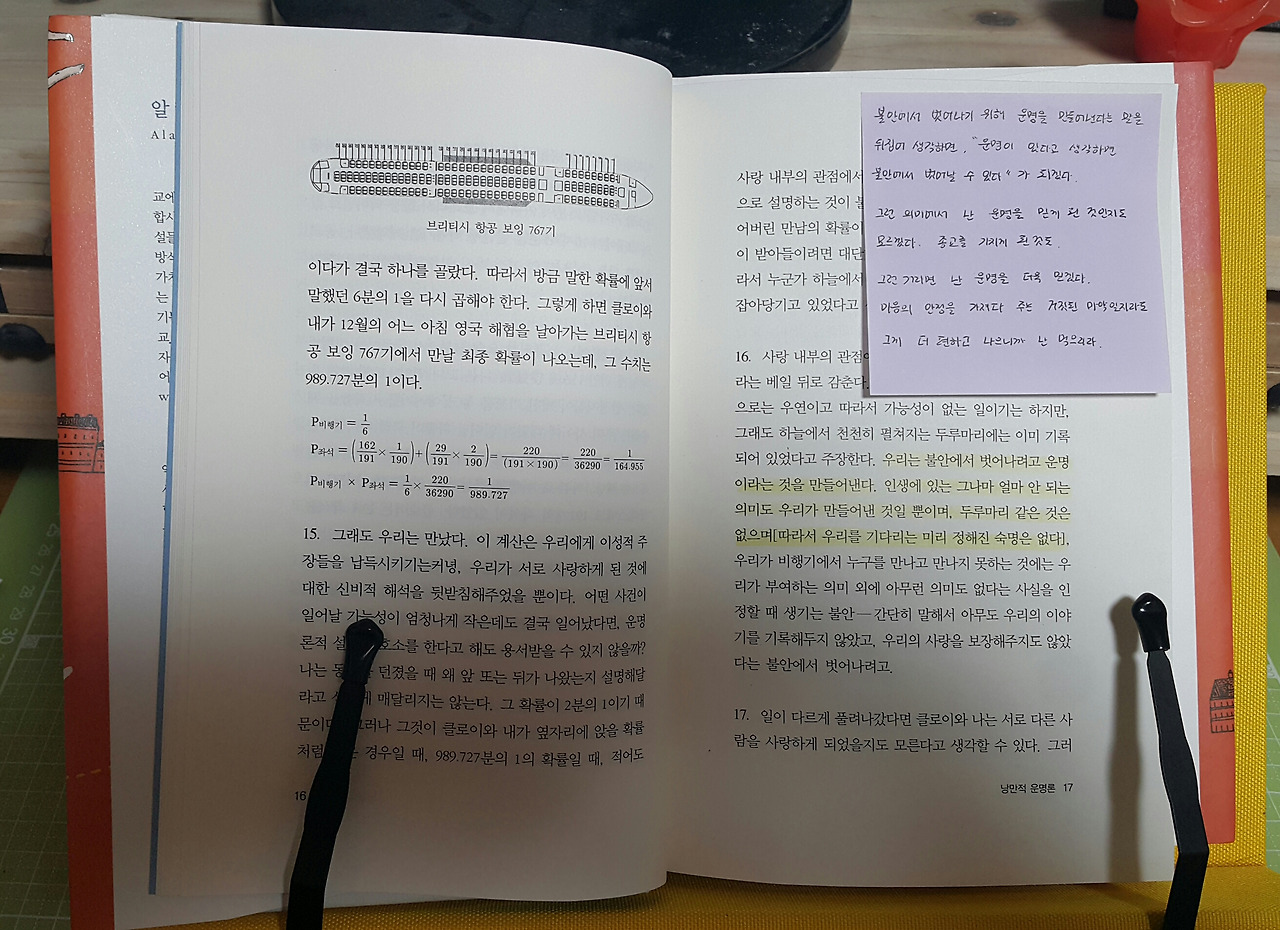 알
Ala
교에
합시
설들
방식
가치
는
기
교
자
어
w
브리티시 항공 보잉 767기
이다가 결국 하나를 골랐다. 따라서 방금 말한 확률에 앞서
말했던 6분의 1을 다시 곱해야 한다. 그렇게 하면 클로이와
내가 12월의 어느 아침 영국 해협을 날아가는 브리티시 항
공 보잉 767기에서 만날 최종 확률이 나오는데, 그 수치는
989.727분의 1이다.
P비행기 = 1/6
P좌석 = (162/191 × 1/190) + (29/191 × 2/190) = 220/(191×190) = 220/36290 = 1/164.955
P비행기 × P좌석 = 1/6 × 220/36290 = 1/989.727
15. 그래도 우리는 만났다. 이 계산은 우리에게 이성적 주
장들을 납득시키기는커녕, 우리가 서로 사랑하게 된 것에
대한 신비적 해석을 뒷받침해주었을 뿐이다. 어떤 사건이
일어날 가능성이 엄청나게 작은데도 결국 일어났다면, 운명
론적 설 호소를 한다고 해도 용서받을 수 있지 않을까?
나는 동 던졌을 때 왜 앞 또는 뒤가 나왔는지 설명해달
라고 게 매달리지는 않는다. 그 확률이 2분의 1이기 때
문이다. 그러나 그것이 클로이와 내가 옆자리에 앉을 확률
처럼 는 경우일 때, 989.727분의 1의 확률일 때, 적어도
16
사랑 내부의 관점에서
으로 설명하는 것이 불
어버린 만남의 확률이
이 받아들이려면 대단
라서 누군가 하늘에서
잡아당기고 있었다고
16. 사랑 내부의 관점
라는 베일 뒤로 감춘다.
으로는 우연이고 따라서 가능성이 없는 일이기는 하지만,
그래도 하늘에서 천천히 펼쳐지는 두루마리에는 이미 기록
되어 있었다고 주장한다. 우리는 불안에서 벗어나려고 운명
이라는 것을 만들어낸다. 인생에 있는 그나마 얼마 안 되는
의미도 우리가 만들어낸 것일 뿐이며, 두루마리 같은 것은
없으며[따라서 우리를 기다리는 미리 정해진 숙명은 없다],
우리가 비행기에서 누구를 만나고 만나지 못하는 것에는 우
리가 부여하는 의미 외에 아무런 의미도 없다는 사실을 인
정할 때 생기는 불안—간단히 말해서 아무도 우리의 이야
기를 기록해두지 않았고, 우리의 사랑을 보장해주지도 않았
다는 불안에서 벗어나려고.
17. 일이 다르게 풀려나갔다면 클로이와 나는 서로 다른 사
람을 사랑하게 되었을지도 모른다고 생각할 수 있다. 그러
낭만적 운명론 17
불안에서 벗어나기 위해 운명을 만들어낸다는 말을
뒤집어 생각하면, "운명이 있다고 생각하면
불안에서 벗어날 수 있다"가 되겠다.
그런 의미에서 난 운명을 믿게 된 것인지도
모르겠다. 종교를 가지게 된 것도.
그런 거라면 난 운명을 더욱 믿겠다.
마음의 안정을 가져다 주는 거짓된 마약일지라도
그게 더 편하고 나으니까 난 먹으리라.